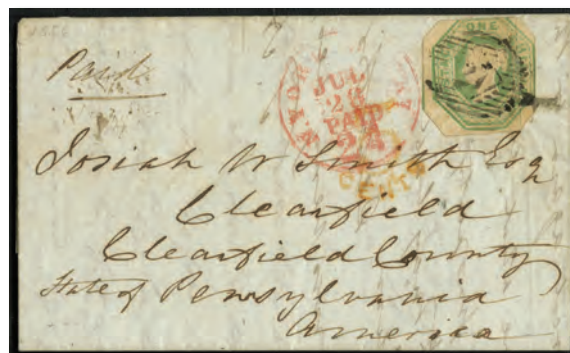 1856
Paid
ONE
N. YORK
JUL
28
PAID
24
CENTS
Josiah W Smith Esq
Clearfield
Clearfield County
State of Pennsylvania
America